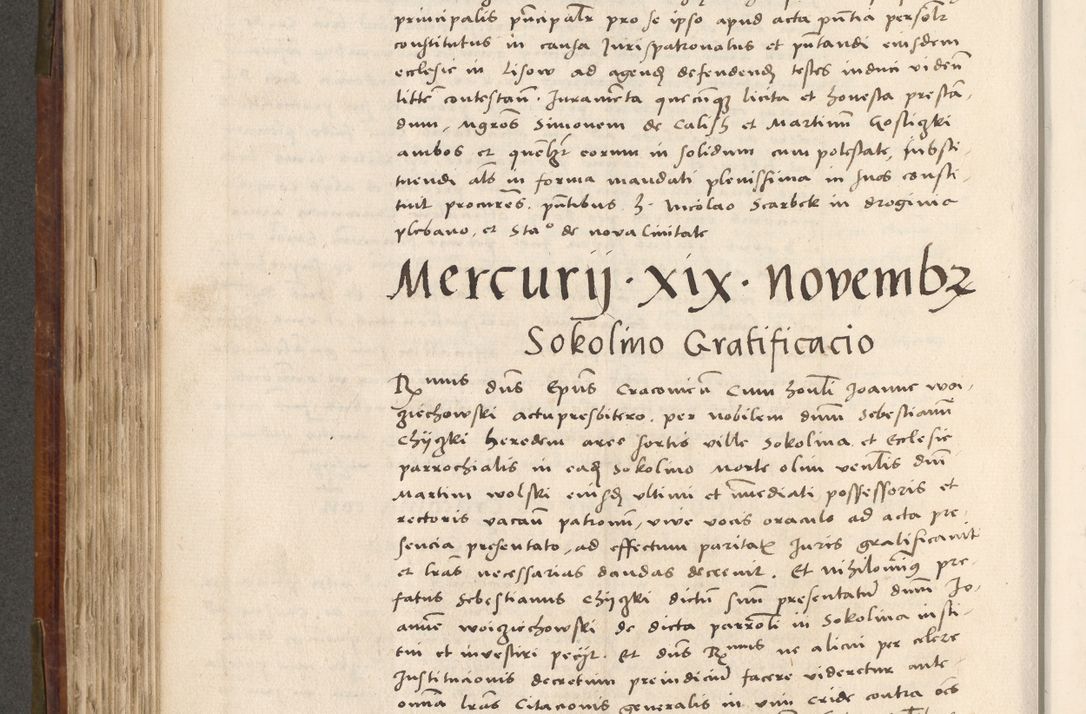 principalis pn̄cipalr̄ pro se ipso apud acta pn̄tia personlr̄
constitutus in causa Jurispatronatus et pn̄tandi eiusdem
ecclesie in Lisow ad agend defendend testes induci viden̄
litte͞ contestan̄. Juramēta quecunq licita et honesta prestā-
dum, Mgros Simonem de Calish et Martinū Gosliczki
ambos et quēlibet eorum in solidum cum potestate, substi-
tuendi als in forma mandati plenissima in Inos consti-
tuit procures. pn̄tibus h. Nicolao Scarbek in droginia
plebano, et Sta° de nova Civitate
Mercurij · xix · novembꝫ
Sokolino Gratificacio
Rmus dūs Epūs Cracovien̄ Cum honli Joanne woi-
ziechowski actu presbitero. per nobilem dnm̄ Sebestianū
Chyczki heredem aree fortis ville Sokolina et Ecclesie
parrochialis in ead Sokolino Morte olim venlis dni
Martini wolski eiusd ultimi et īmediati possessoris et
rectoris vacan̄ patronū, vive vocis oraculo ad acta pre-
sencia presentato, ad effectum paritat Juris gratificavit
et lrās necessarias dandas decrevit. Et nihilominꝰ pre-
fatus Sebestianus Chyczki dictū suū presentatū dnm̄ Jo-
annē woiziechowski de dicta parroli in Sokolina insti-
tui et investiri peciit. Et dūs Rmus ne alicui per celere
Institucionis decretum preiudiciū facere videretur ante
omnia lrās Citacionis generalis in vim cride contra oēs